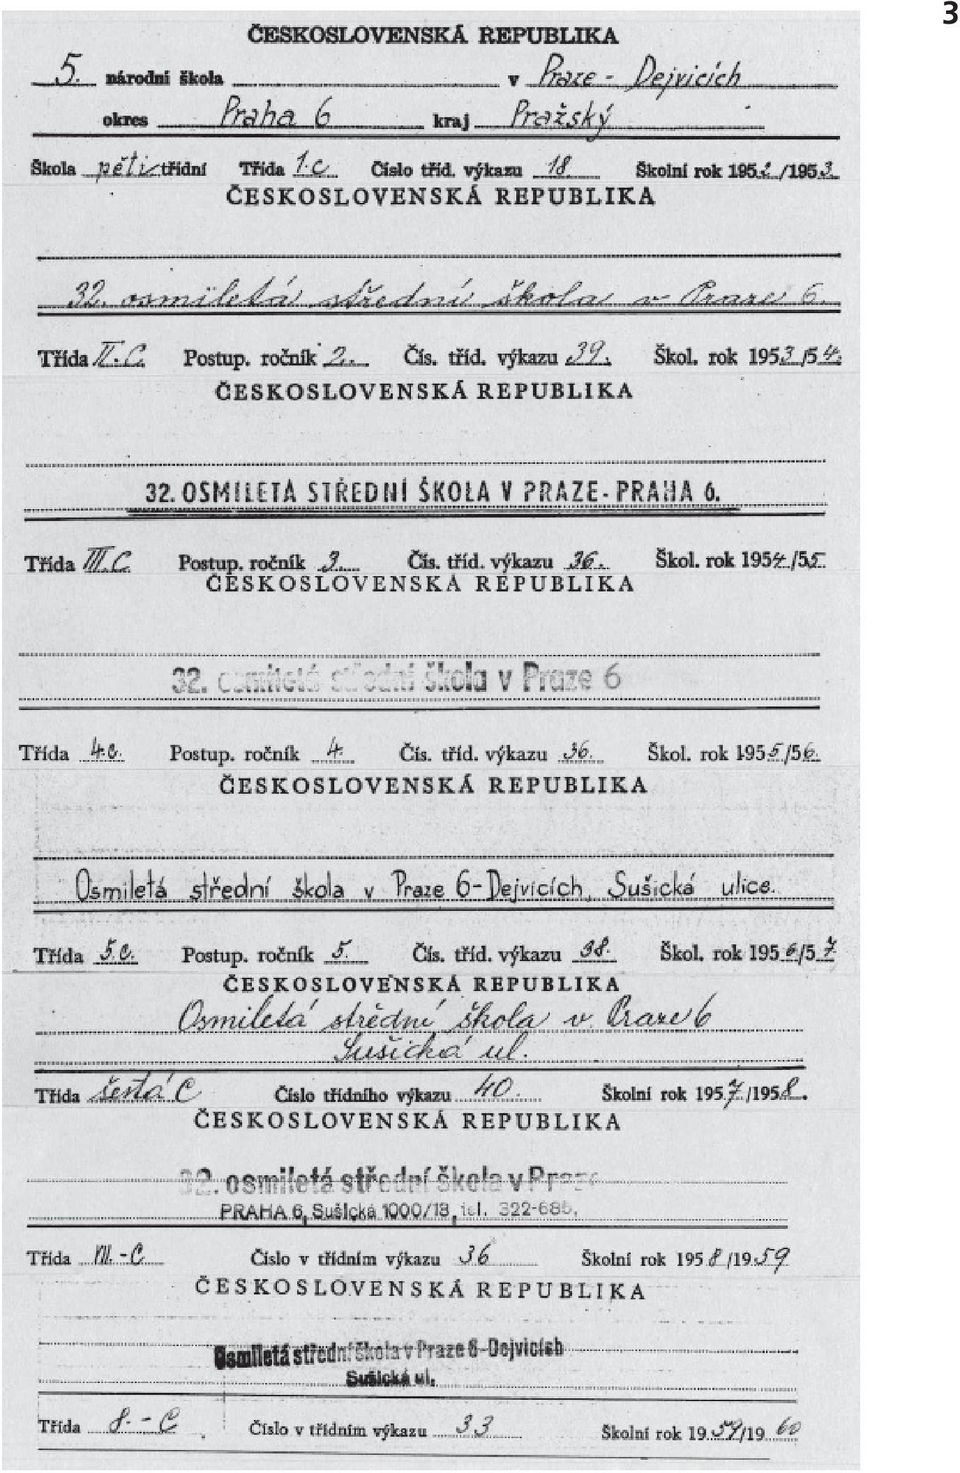 3
ČESKOSLOVENSKÁ REPUBLIKA
5. národní škola v Praze - Dejvicích
okres Praha 6 kraj Pražský
Škola pěti třídní Třída 1.C. Číslo tříd. výkazu 18 Školní rok 1952/1953
ČESKOSLOVENSKÁ REPUBLIKA
32. osmiletá střední škola v Praze 6.
Třída II.C. Postup. ročník 2. Čís. tříd. výkazu 39. Škol. rok 1953/54.
ČESKOSLOVENSKÁ REPUBLIKA
32. OSMILETÁ STŘEDNÍ ŠKOLA V PRAZE - PRAHA 6.
Třída III.C. Postup. ročník 3. Čís. tříd. výkazu 36. Škol. rok 1954/55.
ČESKOSLOVENSKÁ REPUBLIKA
32. osmiletá střední škola v Praze 6
Třída 4.C. Postup. ročník 4. Čís. tříd. výkazu 36. Škol. rok 1955/56.
ČESKOSLOVENSKÁ REPUBLIKA
Osmiletá střední škola v Praze 6-Dejvicích, Sušická ulice.
Třída 5.C. Postup. ročník 5. Čís. tříd. výkazu 38. Škol. rok 1956/57
ČESKOSLOVENSKÁ REPUBLIKA
Osmiletá střední škola v Praze 6
Sušická ul.
Třída šestá C Číslo třídního výkazu 40. Školní rok 1957/1958.
ČESKOSLOVENSKÁ REPUBLIKA
32. osmiletá střední škola v Praze
PRAHA 6, Sušická 1000/18, tel. 322-685,
Třída VII.-C. Číslo v třídním výkazu 36 Školní rok 1958/1959
ČESKOSLOVENSKÁ REPUBLIKA
Osmiletá střední škola v Praze 6-Dejvicích
Sušická ul.
Třída 8.-C Číslo v třídním výkazu 33 Školní rok 1959/1960